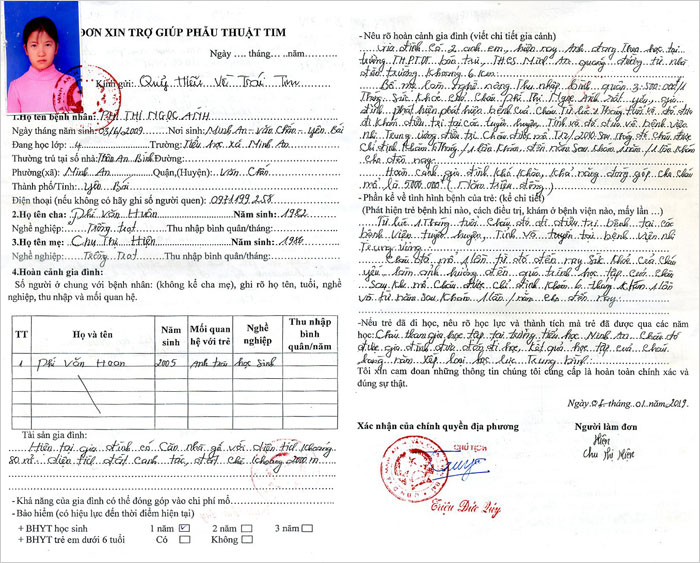 ĐƠN XIN TRỢ GIÚP PHẪU THUẬT TIM
Ngày .... tháng... ..năm..........
Kính gửi: Quỹ Hiểu Về Trái Tim
1.Họ tên bệnh nhân: PHÍ THỊ NGỌC ÁNH
Ngày tháng năm sinh: 03/6/2009 Nơi sinh: Minh An - Văn Chấn - Yên Bái
Đang học lớp: 4 Trường: Tiểu học xã Minh An
Thường trú tại số nhà: Đường:
Phường(xã): Minh An Quận,(Huyện): Văn Chấn
Thành phố/Tỉnh: Yên Bái
Điện thoại (nếu không có hãy ghi số người quen): 0971199258
2.Họ tên cha: Phí Văn Huân Năm sinh: 1982
Nghề nghiệp: Trồng trọt Thu nhập bình quân/tháng:
3.Họ tên mẹ: Chu Thị Hiên Năm sinh: 1986
Nghề nghiệp: Trồng trọt Thu nhập bình quân/tháng:
4.Hoàn cảnh gia đình:
Số người ở chung với bệnh nhân: (không kể cha mẹ), ghi rõ họ tên, tuổi, nghề
nghiệp, thu nhập và mối quan hệ.
TT Họ và tên Năm sinh Mối quan hệ với trẻ Nghề nghiệp Thu nhập bình quân/năm
1 Phí Văn Hoan 2005 Anh trai học sinh
Tài sản gia đình:
Hiện tại gia đình có căn nhà gỗ với diện tích khoảng
80 m2 diện tích đất canh tác, đất chè khoảng 2000 m
- Khả năng của gia đình có thể đóng góp vào chi phí mổ
- Bảo hiểm (có hiệu lực đến thời điểm hiện tại)
+ BHYT học sinh 1 năm 2 năm 3 năm
+ BHYT trẻ em dưới 6 tuổi Có Không
- Nêu rõ hoàn cảnh gia đình (viết chi tiết gia cảnh)
Gia đình có 2 anh em, hiện nay Anh đang theo học tại
trường THPTDT bán trú, THCS Minh An quãng đường từ nhà
đến trường khoảng 6 km.
Bố mẹ làm nghề nông thu nhập bình quân 3.500.000đ/1
tháng sức khỏe của cháu Phí Thị Ngọc Ánh rất yếu, gia
đình phát hiện bệnh của cháu từ lúc 1 tháng tuổi và đã đưa
đi khám điều trị tại các tuyến huyện, tỉnh và bệnh viện
nhi Trung ương điều trị cháu được mổ 2010 sau được
chỉ định khám 6 tháng/1 lần khám đến năm sau khám 1 năm/1 lần khám
cho đến nay.
Hoàn cảnh gia đình khó khăn, khả năng đóng góp cho cháu
mổ là 5.000.000đ (Năm triệu đồng)
- Phần kể về tình hình bệnh của trẻ: (kể chi tiết)
(Phát hiện trẻ bệnh khi nào, cách điều trị, khám ở bệnh viện nào, mấy lần ...)
Từ lúc 1 tháng tuổi cháu đã đi điều trị bệnh tại các
bệnh viện tuyến huyện, tỉnh và tuyến bệnh viện nhi
Trung ương.
Cháu đã mổ 1 lần từ đó đến nay sức khỏe của cháu
yếu làm ảnh hưởng đến quá trình học tập của cháu
sau khi mổ cháu được chỉ định khám 6 tháng khám 1 lần
và từ năm sau khám 1 lần/năm cho đến nay.
-Nếu trẻ đã đi học, nêu rõ học lực và thành tích mà trẻ đã được qua các năm
học: Cháu tham gia học tập tại trường tiểu học Minh An. Cháu
được gia đình đưa đón đi học, kết quả học tập của cháu
hàng năm xếp loại học lực Trung bình.
Tôi xin cam đoan những thông tin chúng tôi cung cấp là hoàn toàn chính xác và
đúng sự thật.
Ngày 04 tháng 01 năm 2019
Xác nhận của chính quyền địa phương Người làm đơn
CHỦ TỊCH
Hiên
Chu Thị Hiên
Triệu Đức Qúy